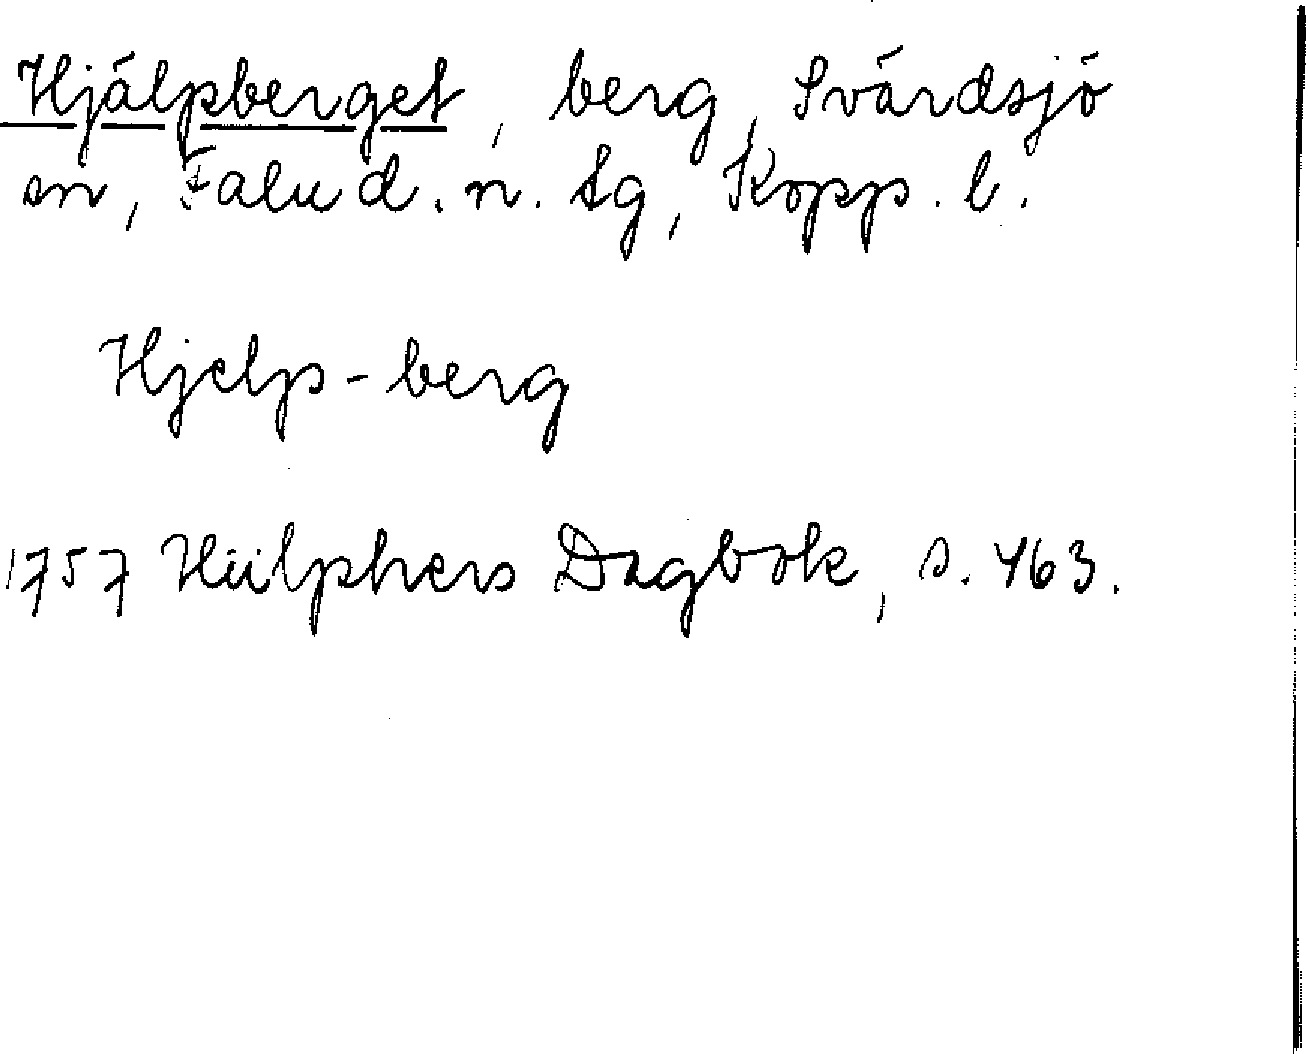 Hjälpberget, berg, Svärdsjö
sn, Falu d. n. tg, Kopp. l.
Hjelp-berg
1757 Hülphers Dagbok, s. 463.